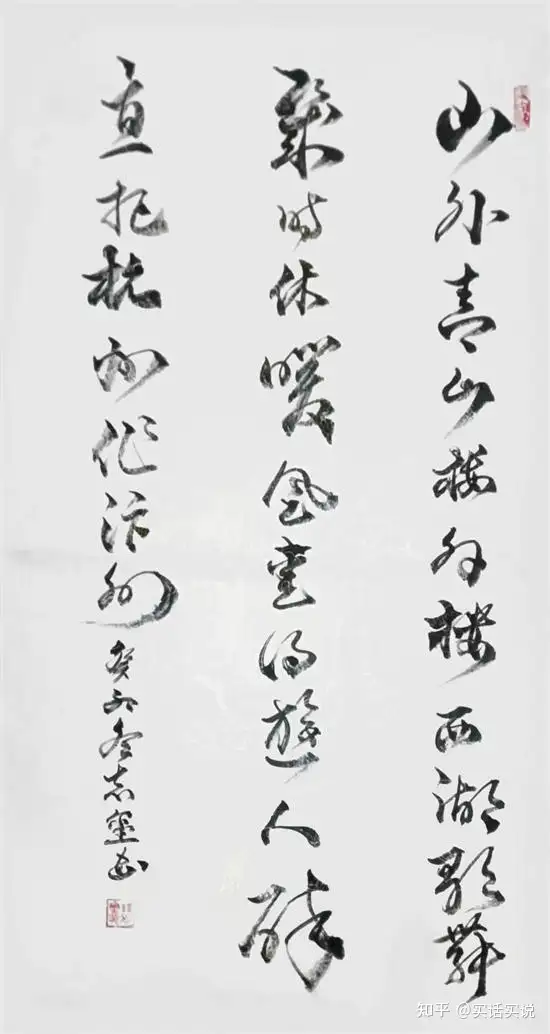 山外青山樓外樓西湖歌舞
幾時休暖風熏得遊人醉
直把杭州作汴州
癸卯冬志書
知乎 @实话实说